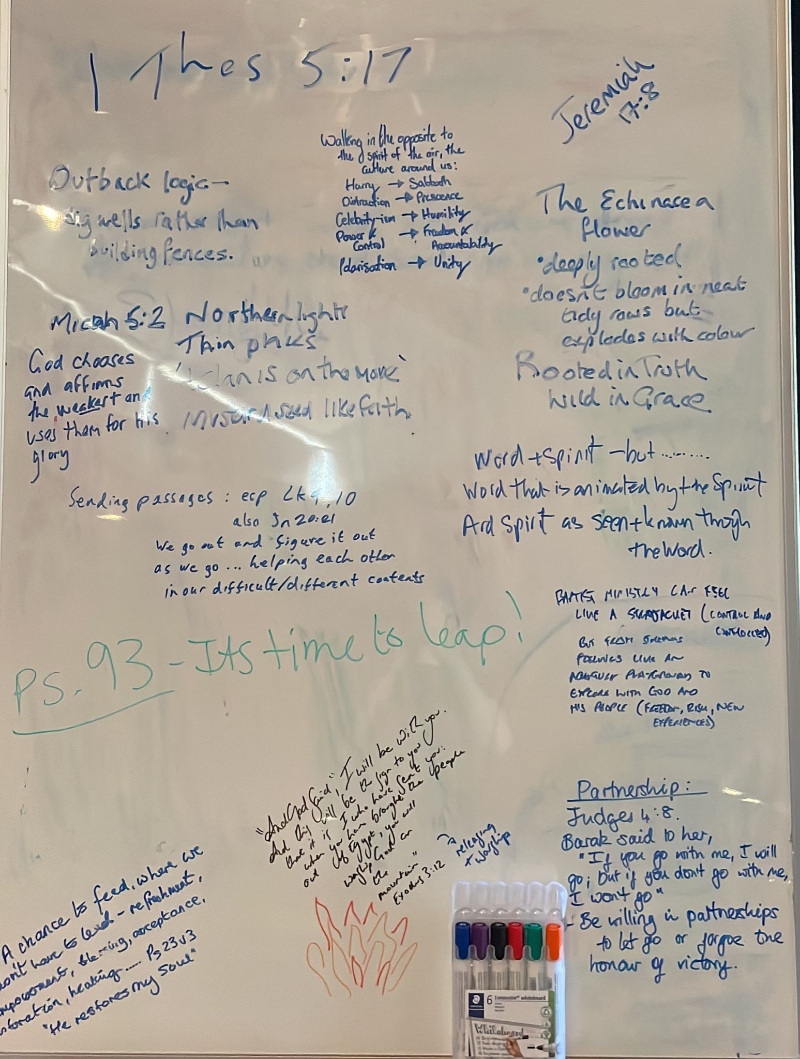 1 Thes 5:17
Jeremiah
17:8
Walking in the opposite to
the spirit of the air, the
culture around us:
Hurry → Sabbath
Distraction → Prescence
Celebrity-ism → Humility
Power & → Freedom &
Control Accountability
Polarisation → Unity
Outback logic-
Dig wells rather than
building fences.
The Echinasea
flower
•deeply rooted
•doesn't bloom in neat
tidy rows but
explodes with colour
Rooted in Truth
Wild in Grace
Micah 5:2
God chooses
and affirms
the weakest and
uses them for his
glory
Northern lights
Thin
'Aslan is on the move'
Mustard seed like faith
Word + Spirit - but ........
Word that is animated by the Spirit
And Spirit as seen + known through
the Word.
Sending passages: esp Lk 9, 10
also Jn 20:21
We go out and figure it out
as we go ... helping each other
in our difficult/different contexts
MINISTRY CAN FEEL
LIKE A (CONTROL AND
CONTROLLED)
BUT
FEELINGS LIKE AN
PLAYGROUND TO
EXPLORE WITH GOD AND
HIS PEOPLE (FREEDOM, RISK, NEW
EXPERIENCES)
Ps. 93 - Its time to leap!
"And God said, "I will be with you.
And this will be the sign to you
that it is I who have sent you:
when you have brought the people
out of Egypt, you will
worship God on
the
mountain"
Exodus 3:12
releasing
+ worship
Partnership:
Judges 4:8.
Barak said to her,
"If you go with me, I will
go; but if you don't go with me,
I won't go"
- Be willing in partnerships
to let go or forgoe the
honour of victory.
A chance to feed, where we
don't have to lead - refreshment,
empowerment, blessing, acceptance,
restoration, healing..... Ps 23v3
"He restores my soul"
STAEDTLER
6 Lumocolor whiteboard
Whiteboard